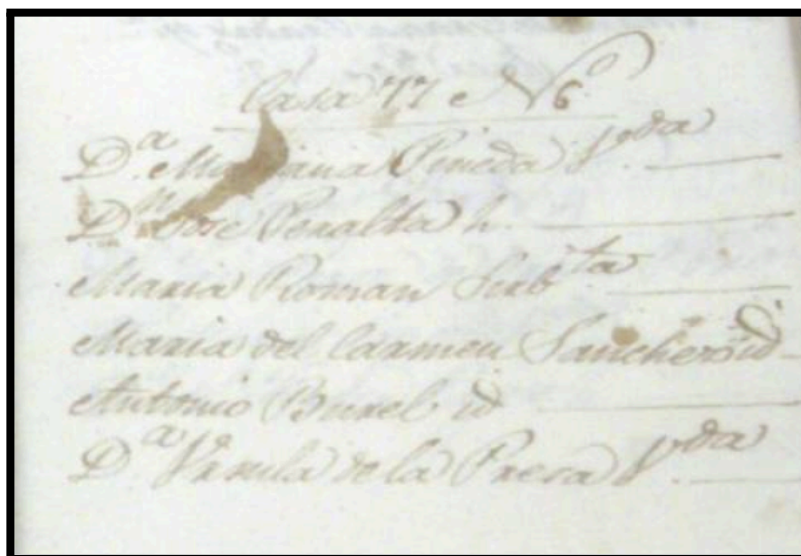 Casa 77 e N 6º
D.ª Mariana Pineda V.da
D.n José Peralta h.
Maria Roman Sirb.ta
Maria del Carmen Sanchez id
Antonio Burel id
D.ª Vrsula de la Presa V.da